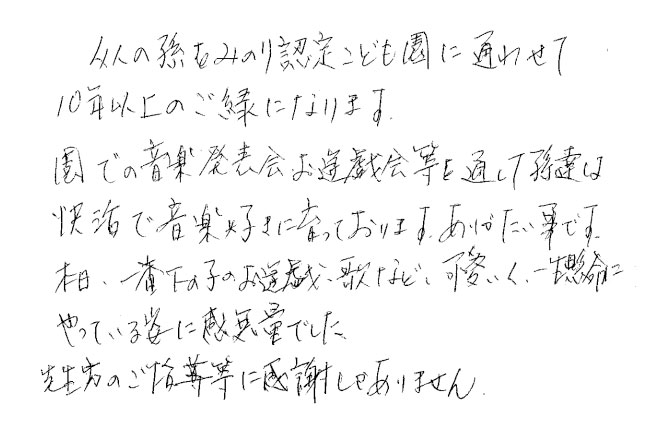 4人の孫をみのり認定こども園に通わせて
10年以上のご縁になります。
園での音楽発表会お遊戯会等を通して孫達は
快活で音楽好きに育っております。ありがたい事です。
本日、一番下の子のお遊戯、歌など、可愛いく、一生懸命に
やっている姿に感無量でした。
先生方のご指導等に感謝しかありません。